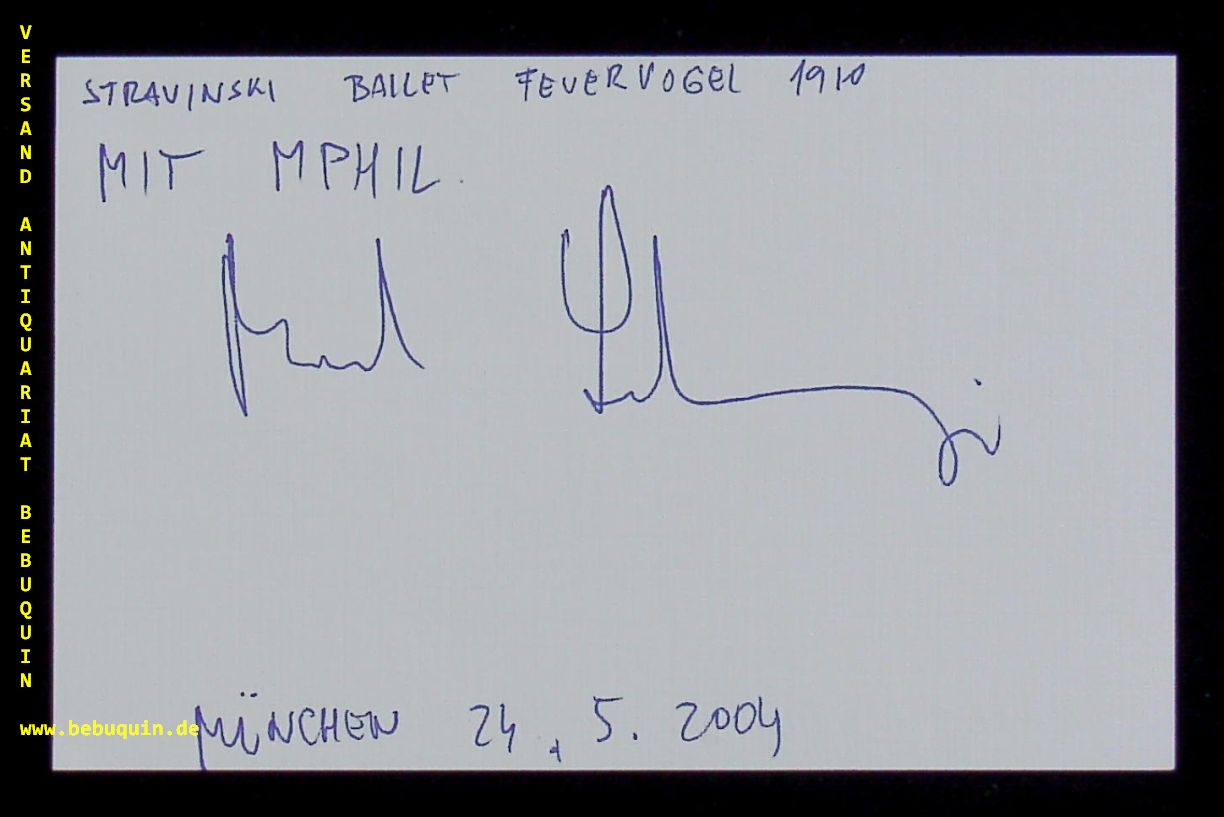 STRAVINSKI BALLET FEUERVOGEL 1910
MIT MPHIL.
MÜNCHEN 24.5.2004
VERSAND ANTIQUARIAT BEBUQUIN
www.bebuquin.de